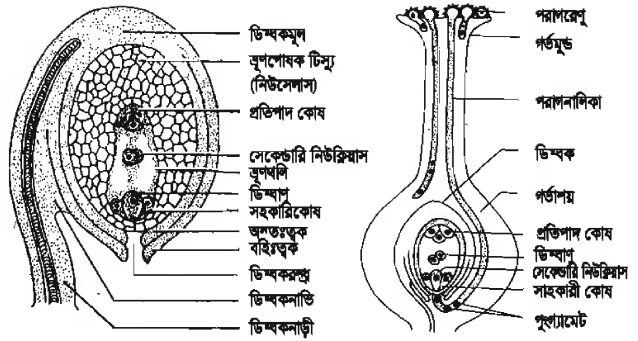 ডিম্বকমূল
ভ্রূণপোষক টিস্যু
(নিউসেলাস)
প্রতিপাদ কোষ
সেকেন্ডারি নিউক্লিয়াস
ভ্রূণথলি
ডিম্বাণু
সহকারিকোষ
অন্তঃত্বক
বহিঃত্বক
ডিম্বকরন্ধ্র
ডিম্বকনাভি
ডিম্বকনাড়ী
পরাগরেণু
গর্ভমুন্ড
পরাগনালিকা
ডিম্বক
গর্ভাশয়
প্রতিপাদ কোষ
ডিম্বাণু
সেকেন্ডারি নিউক্লিয়াস
সাহকারী কোষ
পুংগ্যামেট